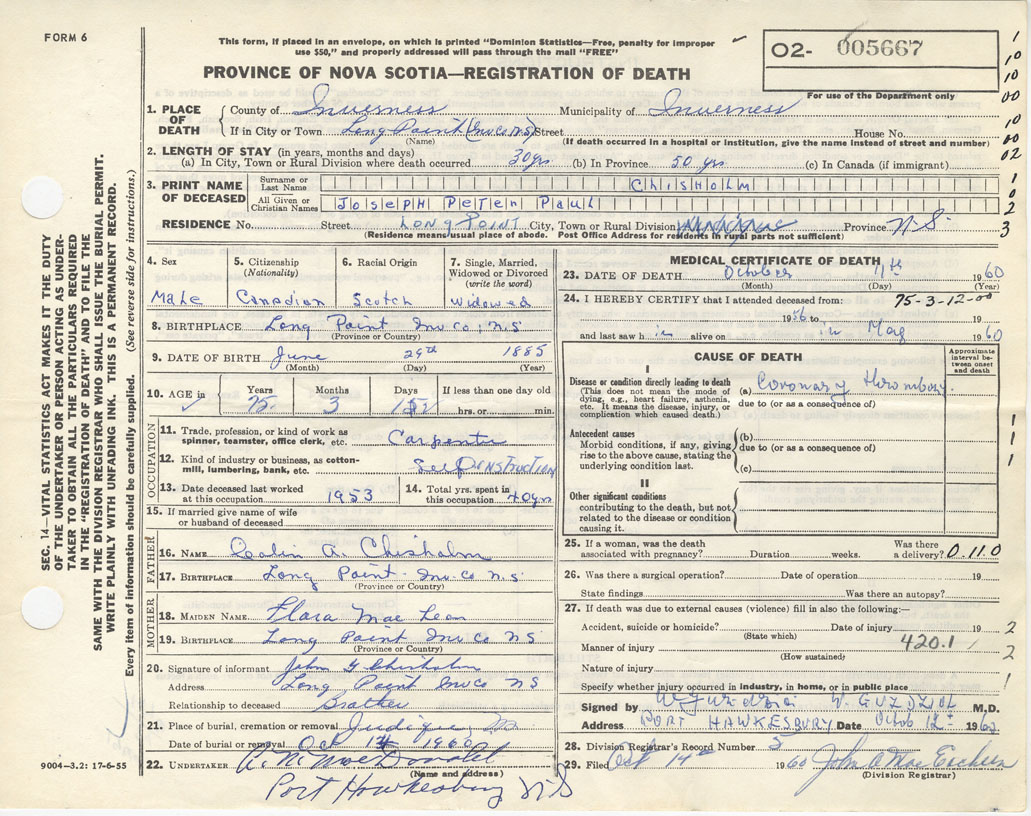 FORM 6
This form, if placed in an envelope, on which is printed "Dominion Statistics—Free, penalty for improper
use $50," and properly addressed will pass through the mail "FREE"
PROVINCE OF NOVA SCOTIA—REGISTRATION OF DEATH
O2- 005667
For use of the Department only
1. PLACE OF DEATH
County of Inverness Municipality of Inverness
If in City or Town Long Point (Inv Co N.S) Street House No.
(Name) (If death occurred in a hospital or institution, give the name instead of street and number)
2. LENGTH OF STAY (in years, months and days)
(a) In City, Town or Rural Division where death occurred 30 yrs (b) In Province 50 yrs (c) In Canada (if immigrant)
3. PRINT NAME OF DECEASED
Surname or Last Name CHISHOLM
All Given or Christian Names JOSEPH PETER PAUL
RESIDENCE No. Street LONG POINT City, Town or Rural Division Province N.S.
(Residence means usual place of abode. Post Office Address for residents in rural parts not sufficient)
4. Sex
Male
5. Citizenship
(Nationality)
Canadian
6. Racial Origin
Scotch
7. Single, Married,
Widowed or Divorced
(write the word)
Widowed
8. BIRTHPLACE Long Point Inv co; N.S
(Province or Country)
9. DATE OF BIRTH June 29th 1885
(Month) (Day) (Year)
10. AGE in Years Months Days If less than one day old
75 3 hrs. or min.
OCCUPATION
11. Trade, profession, or kind of work as
spinner, teamster, office clerk, etc. Carpenter
12. Kind of industry or business, as cotton-
mill, lumbering, bank, etc. CONSTRUCTION
13. Date deceased last worked
at this occupation 1953
14. Total yrs. spent in
this occupation 40 yrs
15. If married give name of wife
or husband of deceased
FATHER
16. NAME Colin A. Chisholm
17. BIRTHPLACE Long Point Inv Co N.S
(Province or Country)
MOTHER
18. MAIDEN NAME Flora Mac Lean
19. BIRTHPLACE Long Point Inv Co N S
(Province or Country)
20. Signature of informant John Y Chisholm
Address Long Point Inv Co N S
Relationship to deceased Brother
21. Place of burial, cremation or removal Judique
Date of burial or removal Oct 14 1960
22. UNDERTAKER MacDonald
(Name and address)
Port Hawkesbury N S
MEDICAL CERTIFICATE OF DEATH
23. DATE OF DEATH October 11th 1960
(Month) (Day) (Year)
24. I HEREBY CERTIFY that I attended deceased from: 75-3-12-00
1956 to 19
and last saw h im alive on in May 1960
CAUSE OF DEATH
Approximate
interval be-
tween onset
and death
I
Disease or condition directly leading to death
(This does not mean the mode of
dying, e.g., heart failure, asthenia,
etc. It means the disease, injury, or
complication which caused death.)
(a) Coronary thrombosis
due to (or as a consequence of)
Antecedent causes
Morbid conditions, if any, giving
rise to the above cause, stating the
underlying condition last.
(b)
due to (or as a consequence of)
(c)
II
Other significant conditions
contributing to the death, but not
related to the disease or condition
causing it.
25. If a woman, was the death
associated with pregnancy? Duration weeks. Was there
a delivery? 0.11.0
26. Was there a surgical operation? Date of operation 19
State findings Was there an autopsy?
27. If death was due to external causes (violence) fill in also the following:—
Accident, suicide or homicide? Date of injury 19
(State which)
Manner of injury 420.1
(How sustained)
Nature of injury
Specify whether injury occurred in industry, in home, or in public place
Signed by M.D.
Address PORT HAWKESBURY Date Octob 12th 1960
28. Division Registrar's Record Number 5
29. Filed Oct 14th 1960 John A Mac Eachern
(Division Registrar)
SEC. 14—VITAL STATISTICS ACT MAKES IT THE DUTY
OF THE UNDERTAKER OR PERSON ACTING AS UNDER-
TAKER TO OBTAIN ALL THE PARTICULARS REQUIRED
IN THE "REGISTRATION OF DEATH" AND TO FILE THE
SAME WITH THE DIVISION REGISTRAR WHO SHALL ISSUE THE BURIAL PERMIT.
WRITE PLAINLY WITH UNFADING INK. THIS IS A PERMANENT RECORD.
Every item of information should be carefully supplied. (See reverse side for instructions.)
9004-3.2: 17-6-55